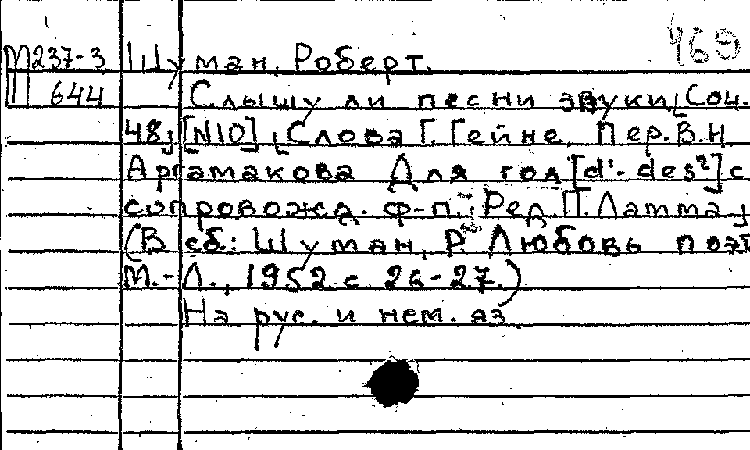 469
М237-3 Шуман, Роберт.
П 644 Слышу ли песни звуки, Соч.
48, [N10], Слова Г. Гейне. Пер. В.Н.
Аргамакова Для гол [d'-des²] с
сопровожд. ф-п.; Ред. П. Ламма,
(В сб.: Шуман, Р. Любовь поэт
М.-Л., 1952 с 26-27.)
На рус. и нем. яз